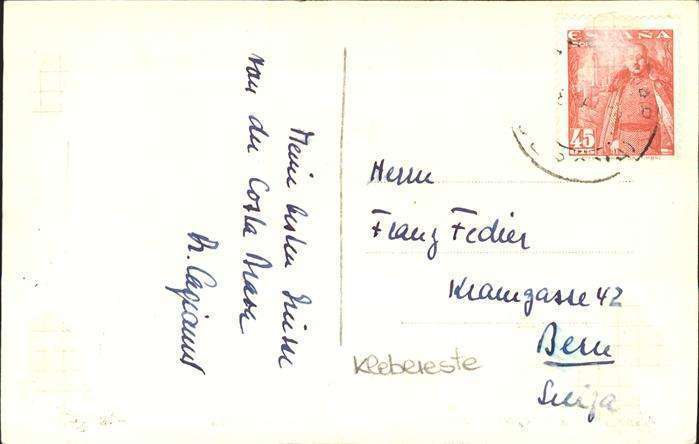 Meine besten Grüsse
von der Costa Brava
ESPAÑA
45
Herrn
Franz Fedier
Kramgasse 42
Bern
Suiza
Klebereste